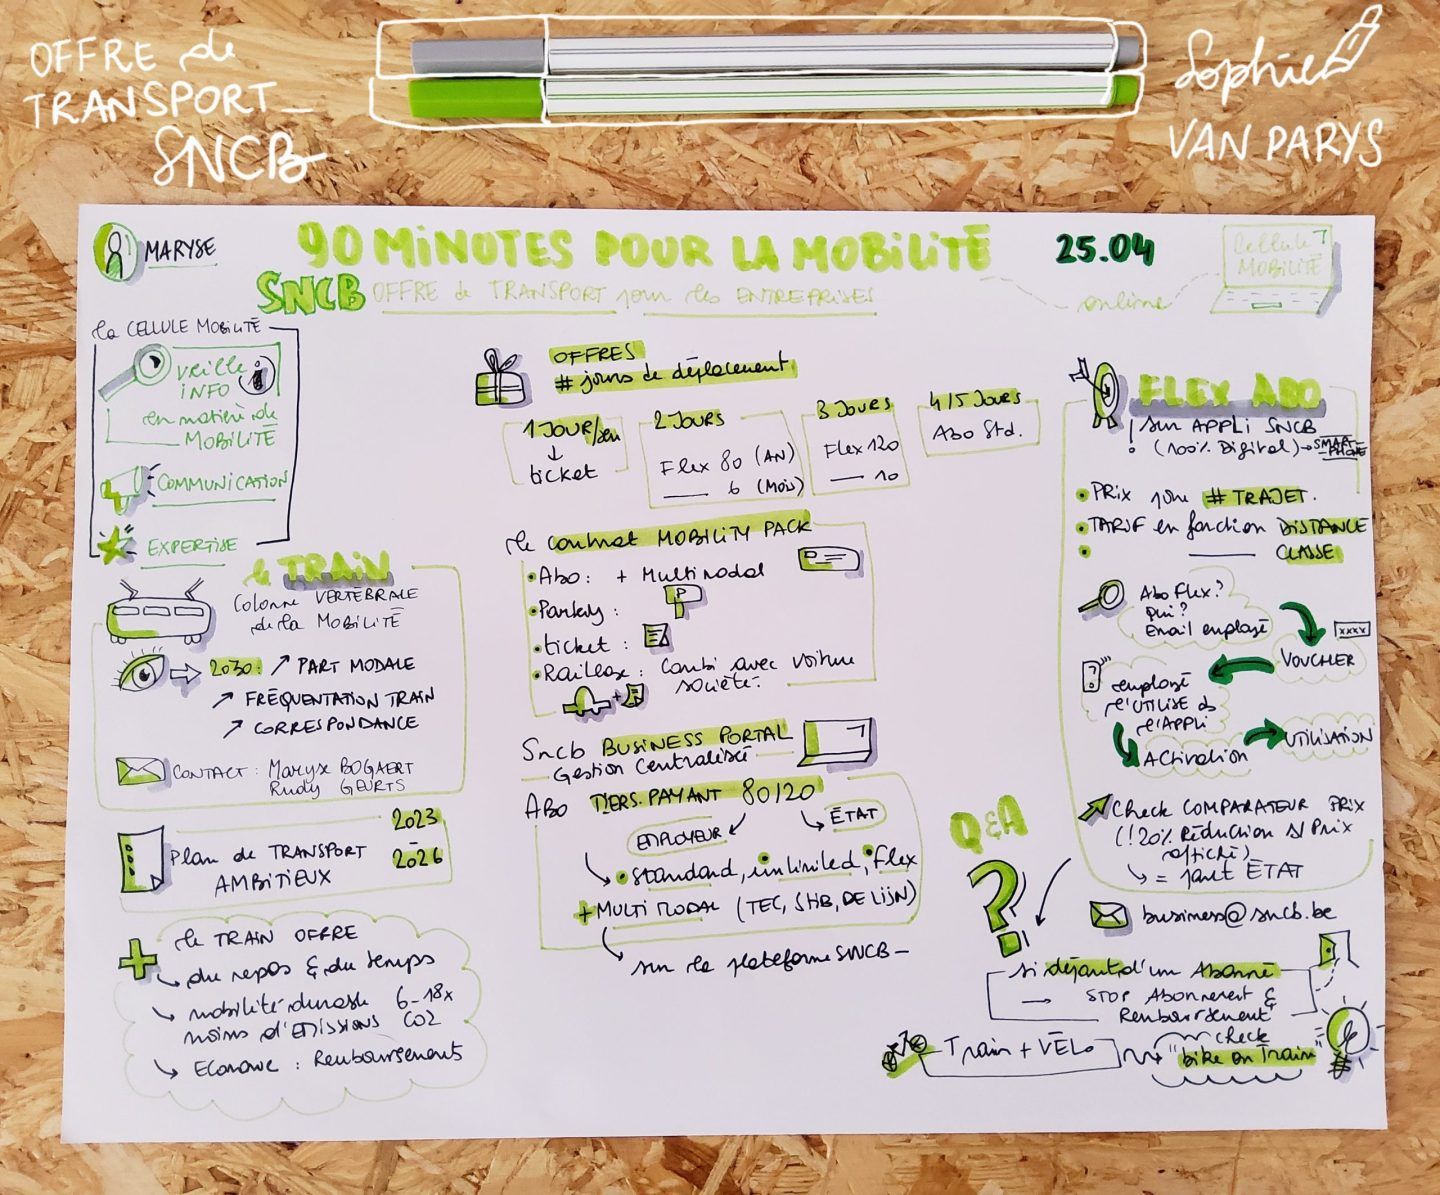 OFFRE de
TRANSPORT_
SNCB
Sophie
VAN PARYS
MARYSE
90 MINUTES POUR LA MOBILITÉ
25.04
Cellule
MOBILITÉ
SNCB OFFRE de TRANSPORT pour les ENTREPRISES
online
la CELLULE MOBILITÉ
VEILLE
INFO
en matière de
MOBILITÉ
COMMUNICATION
EXPERTISE
le TRAIN
COLONNE VERTÉBRALE
de la MOBILITÉ
2030: ↗ PART MODALE
↗ FRÉQUENTATION TRAIN
↗ CORRESPONDANCE
CONTACT: Maryse BOGAERT
Rudy GEURTS
Plan de TRANSPORT
AMBITIEUX
2023
-
2026
+ le TRAIN OFFRE
↳ du repos & du temps
↳ mobilité durable 6-18x
moins d'EMISSIONS CO2
↳ Economie: Remboursement
OFFRES
# jours de déplacement
1 JOUR/sem
↓
ticket
2 JOURS
Flex 80 (AN)
—— 6 (MOIS)
3 JOURS
Flex 120
—— 10
4/5 JOURS
Abo Std.
le contrat MOBILITY PACK
• Abo: + Multimodal
• Parking: P
• ticket:
• Railease: Combi avec voiture
société.
Sncb BUSINESS PORTAL
Gestion Centralisée
Abo TIERS.PAYANT 80/20
EMPLOYEUR
ÉTAT
↳ • standard, • unlimited, • Flex
+ MULTI MODAL (TEC, STIB, DE LIJN)
↳ sur la plateforme SNCB-
FLEX ABO
! sur APPLI SNCB
(100% Digital) → SMART
PHONE
• PRIX pour # TRAJET.
• TARIF en fonction DISTANCE
• —— CLASSE
Abo Flex?
Qui?
Email employé
XXXX
VOUCHER
employé
l'UTILISE ds
l'APPLI
ACTIVATION
UTILISATION
Check COMPARATEUR PRIX
(!20% Réduction s/ Prix
affiché)
↳ = part ÉTAT
business@sncb.be
Q&A
?
si départ d'un Abonné
→ STOP Abonnement &
Remboursement
Train + VÉLO
check
"bike on Train"